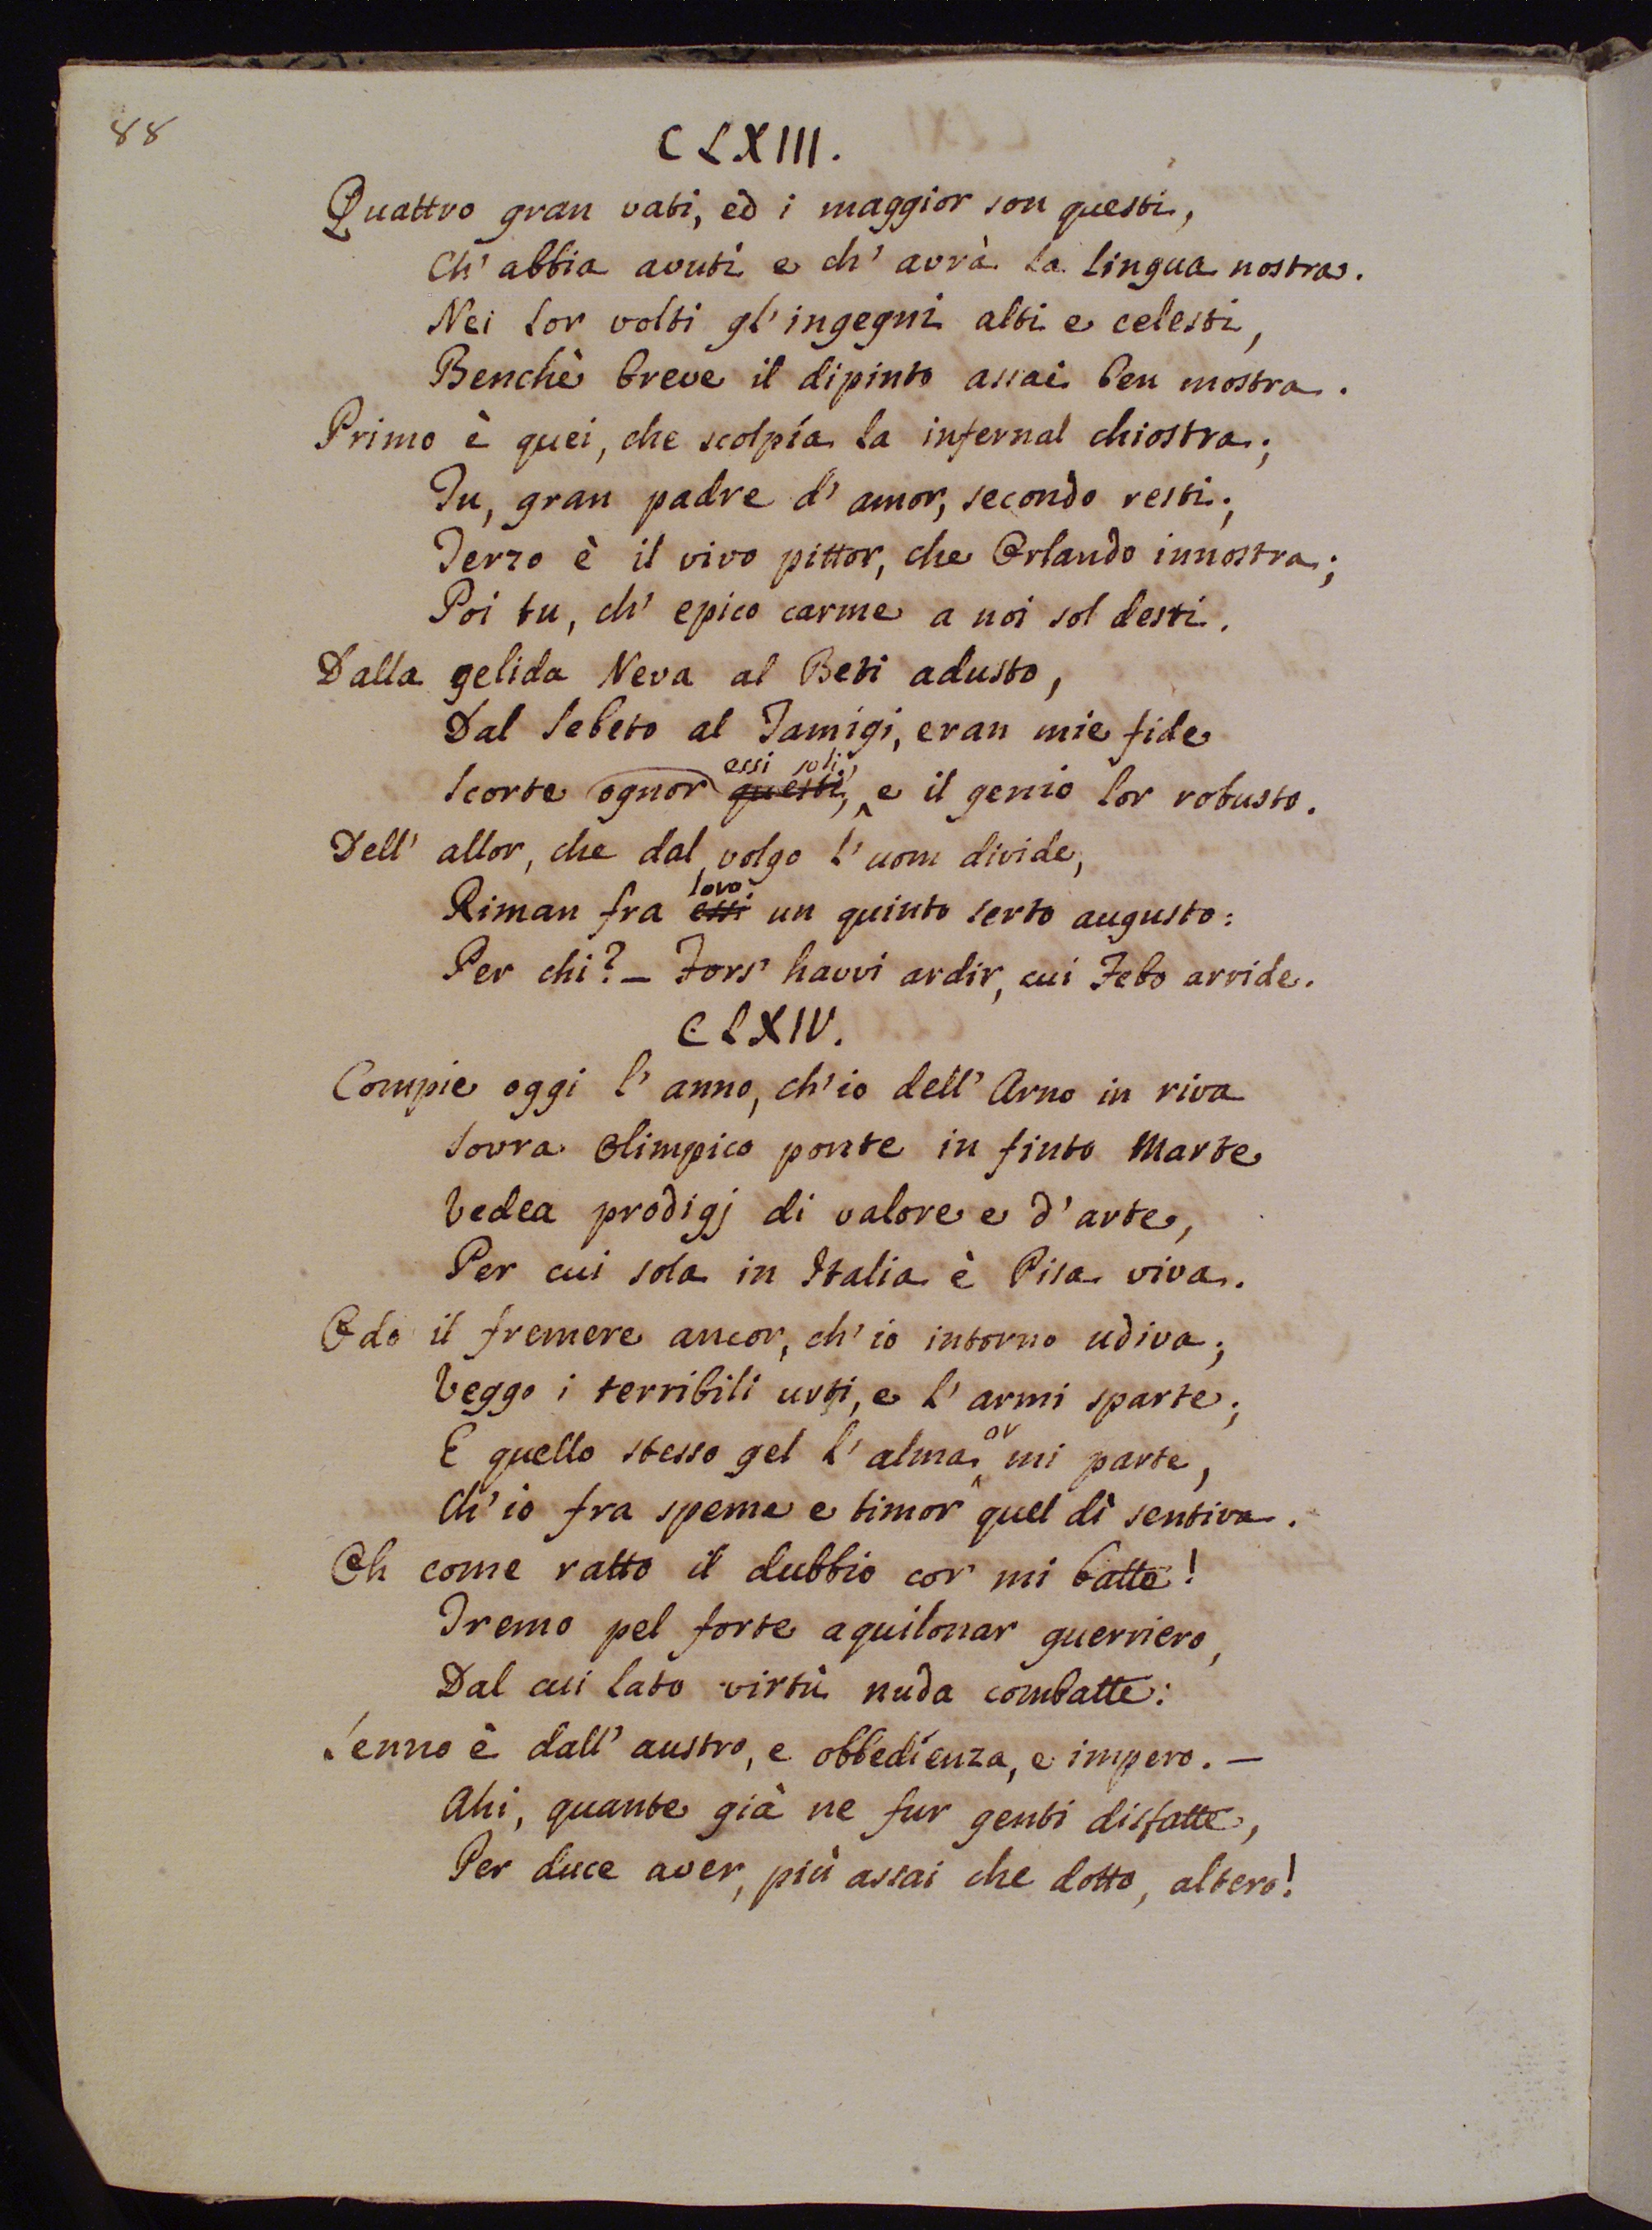 88
CLXIII.
Quattro gran vati, ed i maggior son questi,
Ch' abbia avuti e ch' avrà la lingua nostra.
Nei lor volti gl' ingegni alti e celesti,
Benchè breve il dipinto assai ben mostra.
Primo è quei, che scolpía la infernal chiostra;
Tu, gran padre d' amor, secondo resti;
Terzo è il vivo pittor, che Orlando innostra;
Poi tu, ch' epico carme a noi sol desti.
Dalla gelida Neva al Beti adusto,
Dal Sebeto al Tamigi, eran mie fide
essi soli,
Scorte ognor questi, e il genio lor robusto.
Dell' allor, che dal volgo l' uom divide,
loro
Riman fra essi un quinto serto augusto:
Per chi? — Fors' havvi ardir, cui Febo arride.
CLXIV.
Compie oggi l' anno, ch' io dell' Arno in riva
Sovra Olimpico ponte in finto Marte
Vedea prodigj di valore e d' arte,
Per cui sola in Italia è Pisa viva.
Odo il fremere ancor, ch' io intorno udiva;
Veggo i terribili urti, e l' armi sparte;
or
E quello stesso gel l' alma mi parte,
Ch' io fra speme e timor quel dì sentiva.
Oh come ratto il dubbio cor mi batte!
Tremo pel forte aquilonar guerriero,
Dal cui lato virtù nuda combatte:
Senno è dall' austro, e obbedienza, e impero. —
Ahi, quante già ne fur genti disfatte,
Per duce aver, più assai che dotto, altero!